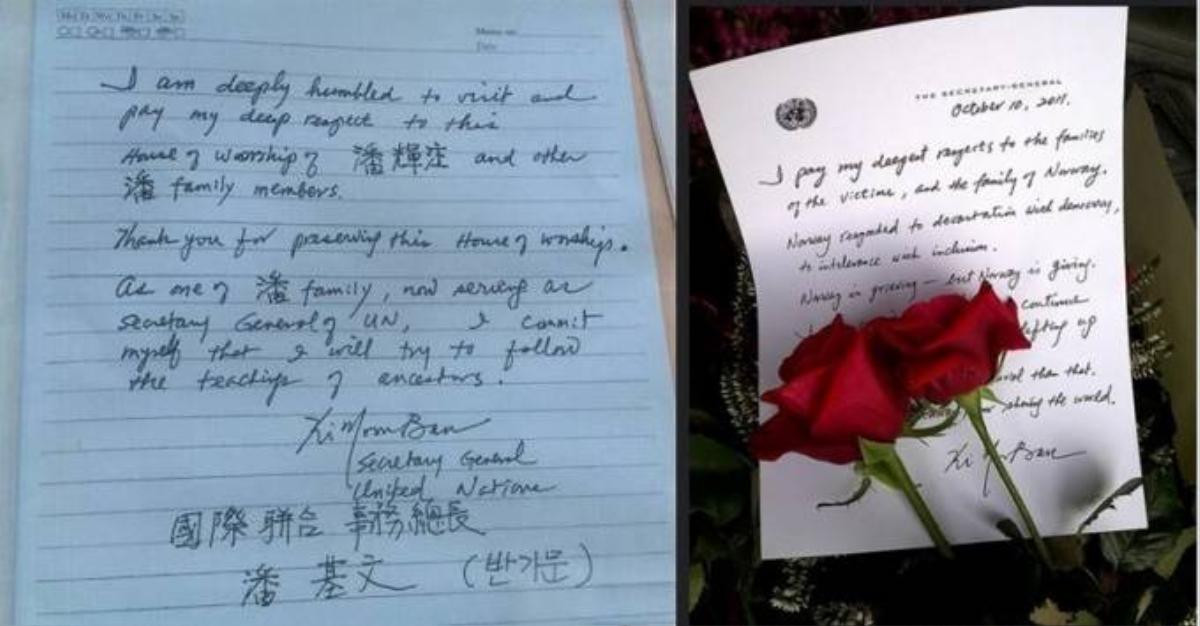 Memo no.
Date
I am deeply humbled to visit and
pay my deep respect to this
House of worship of 潘輝注 and other
潘 family members.
Thank you for preserving this House of worship.
As one of 潘 family, now serving as
Secretary General of UN, I commit
myself that I will try to follow
the teachings of ancestors.
Ki Moon Ban
Secretary General
United Nations
國際聯合 事務總長
潘 基文 (반기문)
THE SECRETARY-GENERAL
October 10, 2011.
I pay my deepest respects to the families
of the victims, and the family of Norway.
Norway responded to devastation with democracy,
to intolerance with inclusion.
Norway is grieving — but Norway is giving.
continue
lifting up
than that.
the world.
Ki Moon Ban